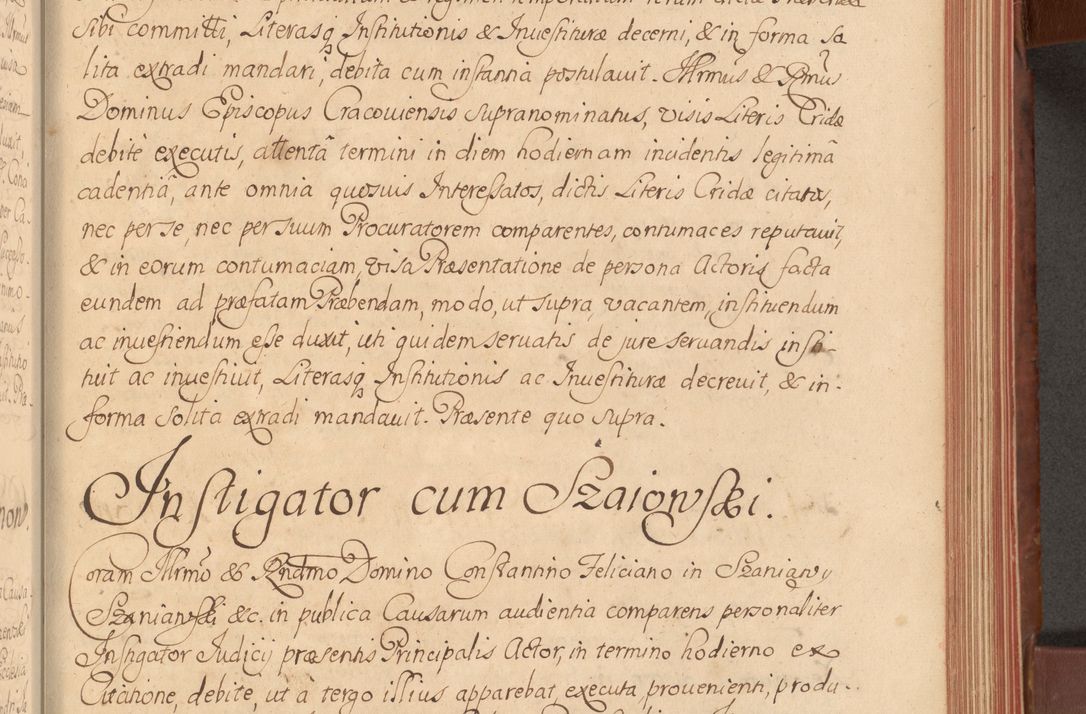 sibi committi, Literasq Institutionis & Inuestituræ decerni, & in forma so
lita extradi mandari, debita cum instantia postulauit. Illrmus & Rmus
Dominus Episcopus Cracouiensis supranominatus, visis Literis Cridæ
debite executis, attentâ termini in diem hodiernam incidentis legitimâ
cadentiâ, ante omnia quosuis Interessatos, dictis Literis Cridæ citatos,
nec per se, nec per suum Procuratorem comparentes, contumaces reputauit,
& in eorum contumaciam, visa Præsentatione de persona Actoris facta
eundem ad præfatam Præbendam, modo, ut supra, vacantem, instituendum
ac inuestiendum esse duxit, uti quidem seruatis de jure seruandis insti-
tuit ac inuestiuit, Literasq Institutionis ac Inuestituræ decreuit, & in
forma solita extradi mandauit. Præsente quo supra.
Instigator cum Szaiowski.
Coram Illrmo & Rndmo Domino Constantino Feliciano in Szaniawy
Szaniawski &c. in publica Causarum audientia comparens personaliter
Instigator Judicij præsentis Principalis Actor, in termino hodierno ex
Citatione, debite, ut à tergo illius apparebat, executa, prouenienti, produ-